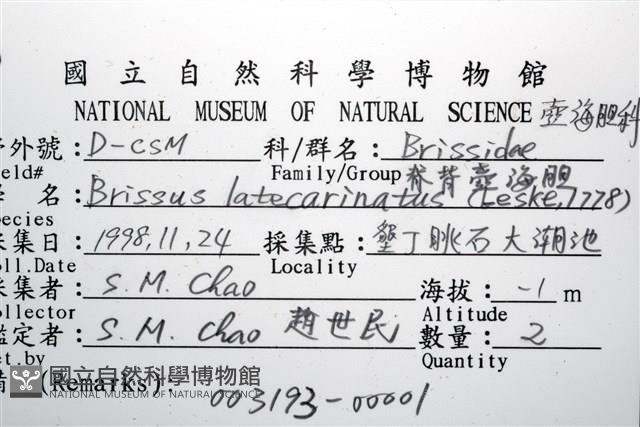 國立自然科學博物館
NATIONAL MUSEUM OF NATURAL SCIENCE 壺海胆科
野外號：D-CSM 科/群名：Brissidae
ield# Family/Group 脊背壺海胆
學名：Brissus latecarinatus (Leske,1778)
pecies
采集日：1998,11,24 採集點：墾丁眺石大潮池
oll.Date Locality
采集者：S. M. Chao 海拔：-1 m
ollector Altitude
鑑定者：S. M. Chao 趙世民 數量：2
et.by Quantity
備 (Remarks): 003193-00001
國立自然科學博物館
NATIONAL MUSEUM OF NATURAL SCIENCE